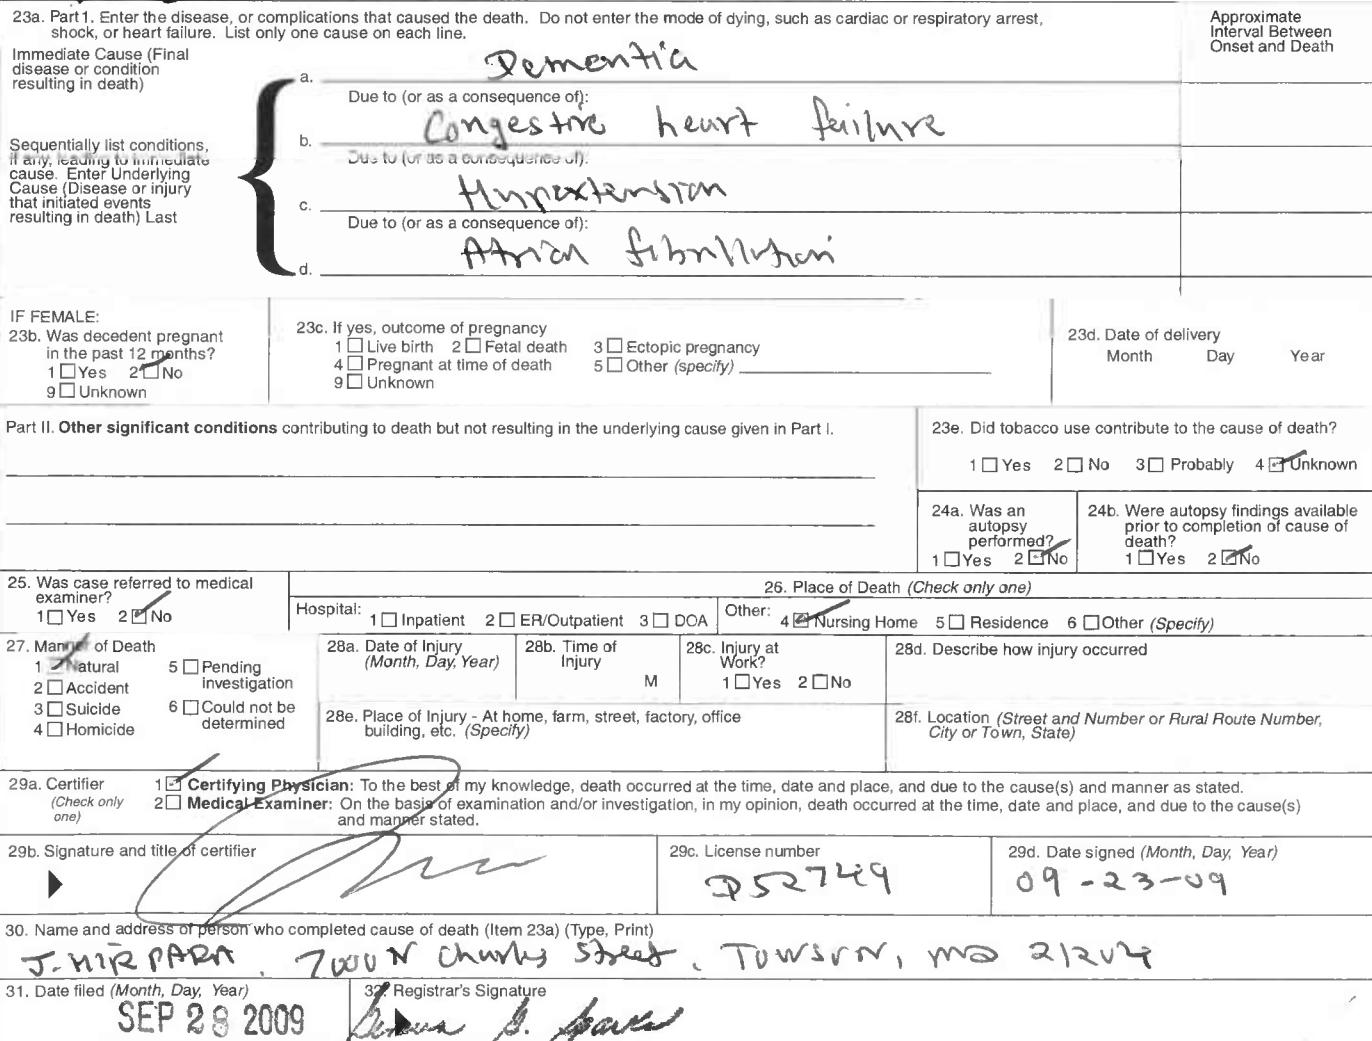 23a. Part 1. Enter the disease, or complications that caused the death. Do not enter the mode of dying, such as cardiac or respiratory arrest,
shock, or heart failure. List only one cause on each line.
Approximate
Interval Between
Onset and Death
Immediate Cause (Final
disease or condition
resulting in death)
a. Dementia
Due to (or as a consequence of):
b. Congestive heart failure
Sequentially list conditions,
if any, leading to immediate
cause. Enter Underlying
Cause (Disease or injury
that initiated events
resulting in death) Last
Due to (or as a consequence of):
c. Hypertension
Due to (or as a consequence of):
d. Atrial fibrillation
IF FEMALE:
23b. Was decedent pregnant
in the past 12 months?
1 Yes 2 No
9 Unknown
23c. If yes, outcome of pregnancy
1 Live birth 2 Fetal death 3 Ectopic pregnancy
4 Pregnant at time of death 5 Other (specify)
9 Unknown
23d. Date of delivery
Month Day Year
Part II. Other significant conditions contributing to death but not resulting in the underlying cause given in Part I.
23e. Did tobacco use contribute to the cause of death?
1 Yes 2 No 3 Probably 4 Unknown
24a. Was an
autopsy
performed?
1 Yes 2 No
24b. Were autopsy findings available
prior to completion of cause of
death?
1 Yes 2 No
25. Was case referred to medical
examiner?
1 Yes 2 No
26. Place of Death (Check only one)
Hospital: 1 Inpatient 2 ER/Outpatient 3 DOA Other: 4 Nursing Home 5 Residence 6 Other (Specify)
27. Manner of Death
1 Natural 5 Pending
investigation
2 Accident
3 Suicide 6 Could not be
determined
4 Homicide
28a. Date of Injury
(Month, Day, Year)
28b. Time of
Injury
M
28c. Injury at
Work?
1 Yes 2 No
28d. Describe how injury occurred
28e. Place of Injury - At home, farm, street, factory, office
building, etc. (Specify)
28f. Location (Street and Number or Rural Route Number,
City or Town, State)
29a. Certifier
(Check only
one)
1 Certifying Physician: To the best of my knowledge, death occurred at the time, date and place, and due to the cause(s) and manner as stated.
2 Medical Examiner: On the basis of examination and/or investigation, in my opinion, death occurred at the time, date and place, and due to the cause(s)
and manner stated.
29b. Signature and title of certifier
29c. License number
D52749
29d. Date signed (Month, Day, Year)
09-23-09
30. Name and address of person who completed cause of death (Item 23a) (Type, Print)
J. MIRPARA, 7000 N Charles Street, TOWSON, MD 21204
31. Date filed (Month, Day, Year)
SEP 28 2009
32. Registrar's Signature